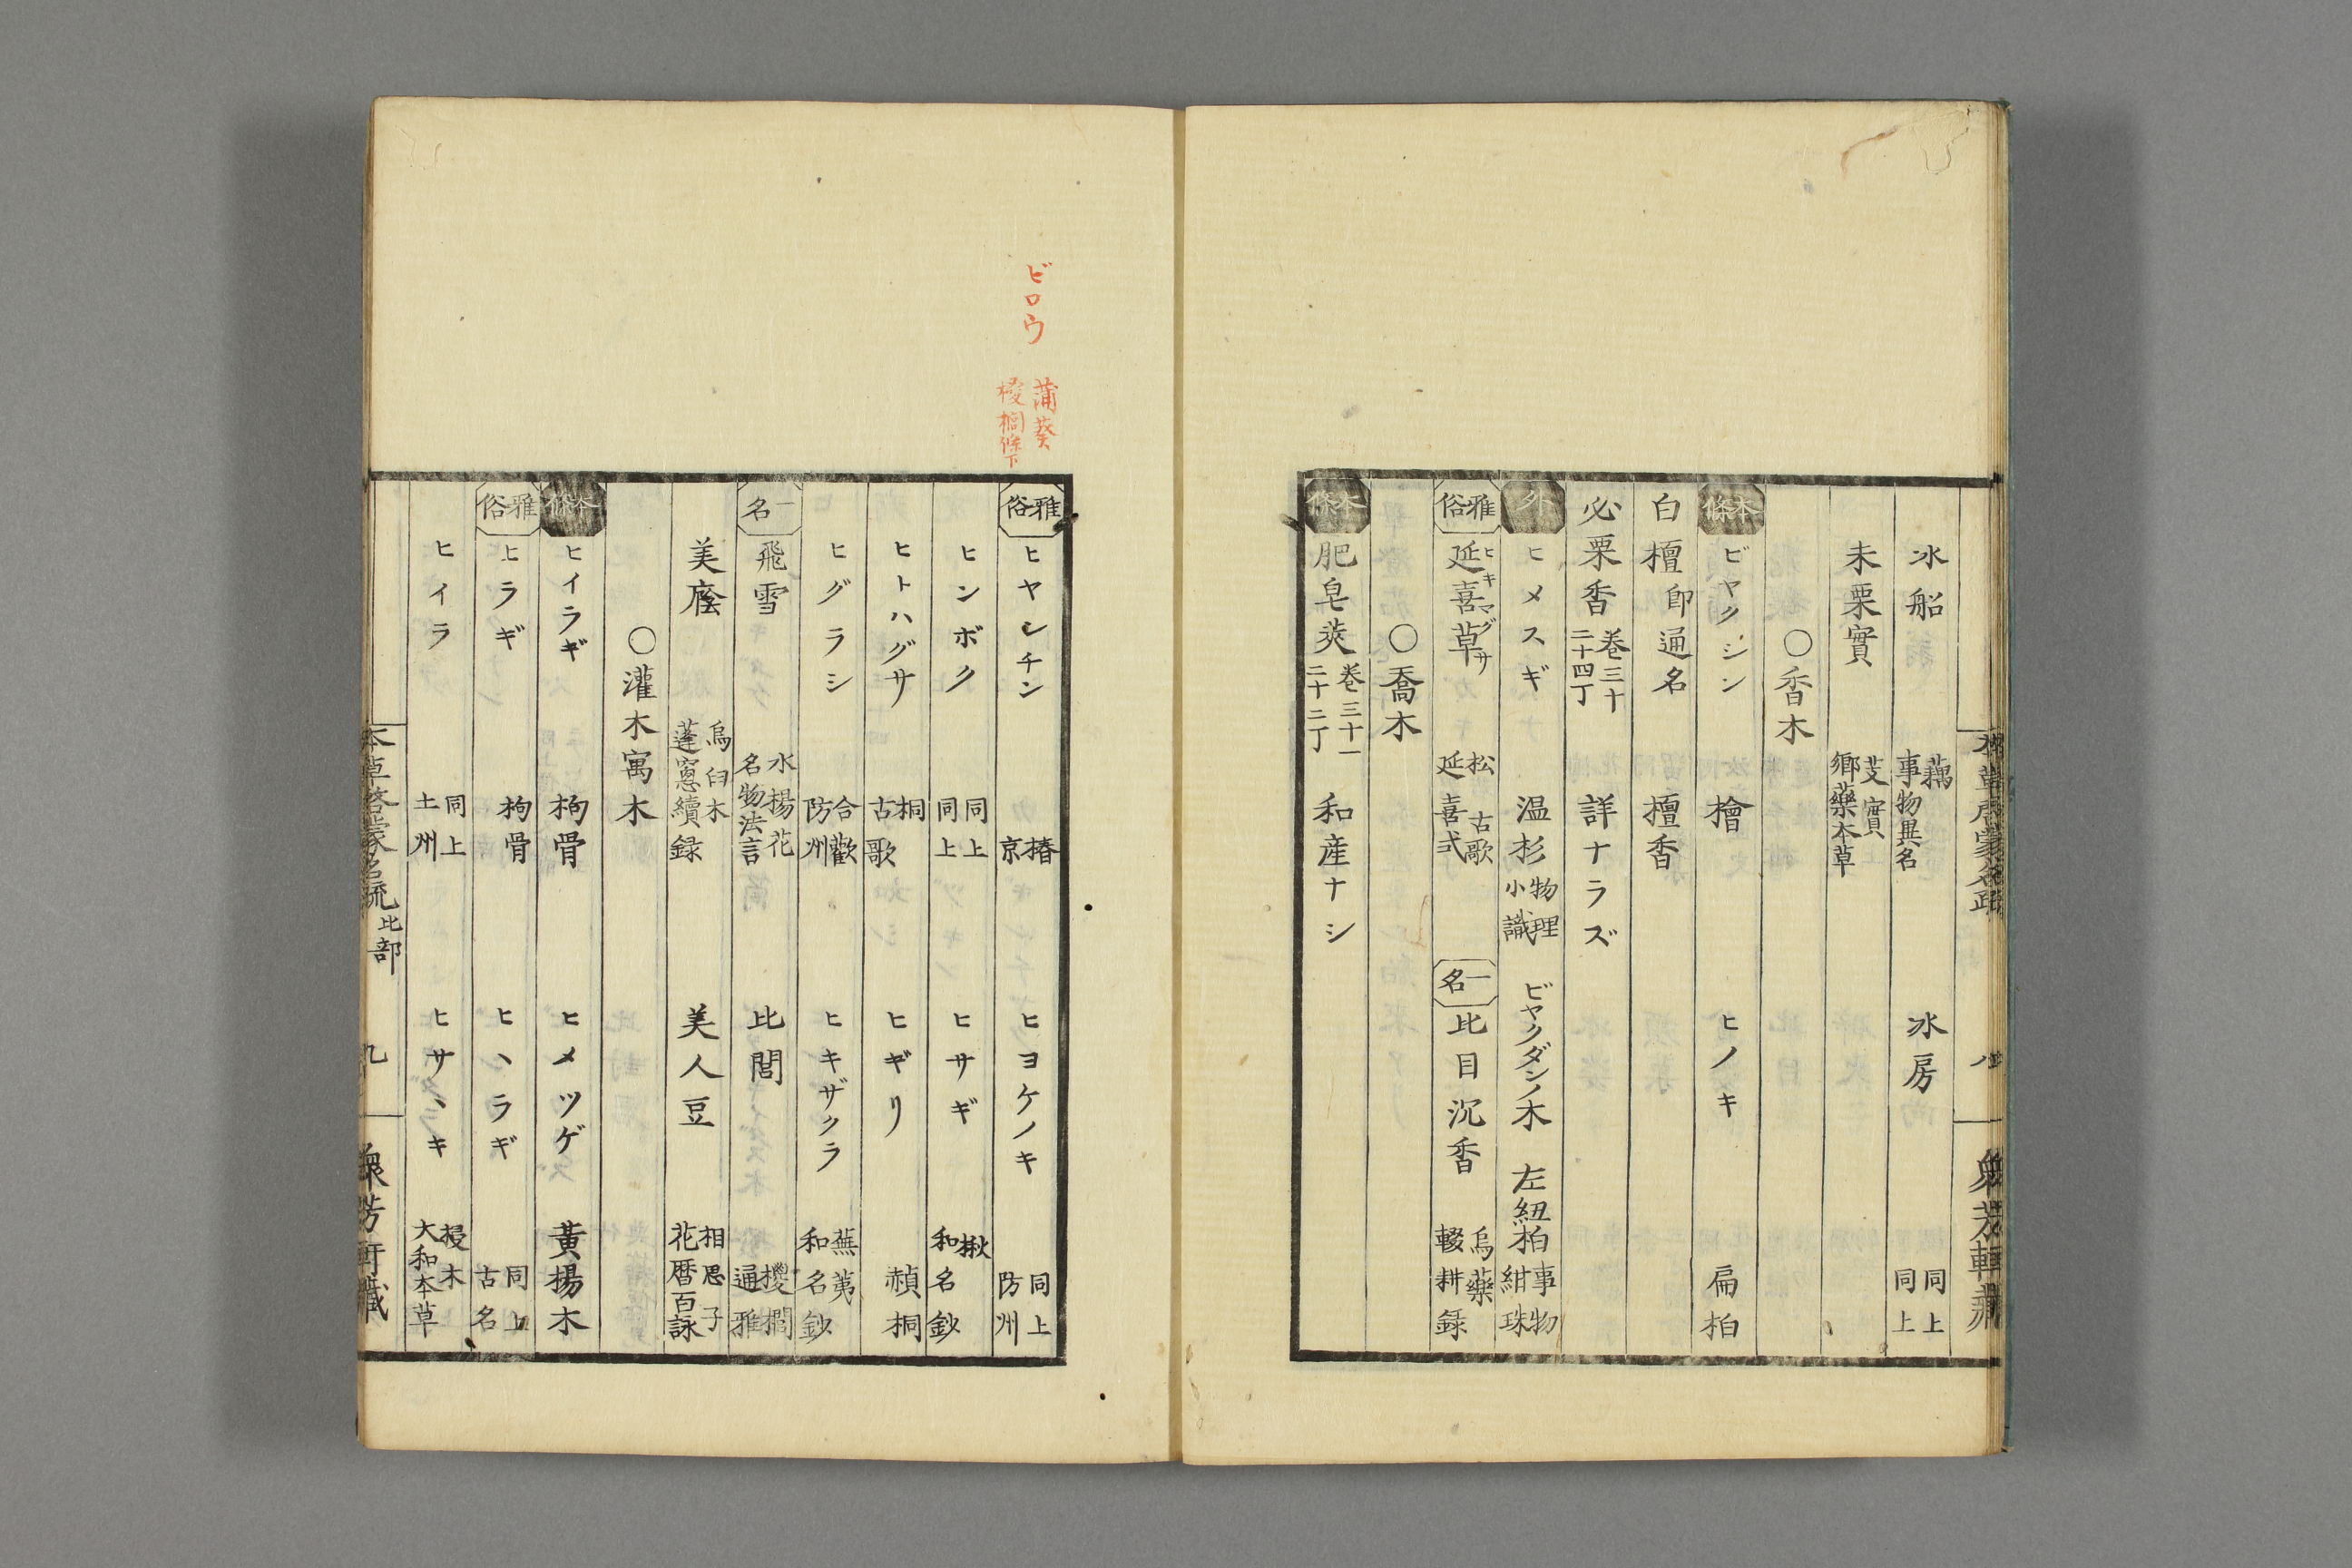 冰船　藕　事物異名　冰房　同上　同上
未栗實　芰實　鄉藥本草
○香木
本條　ビヤクシン　檜　ヒノキ　扁柏
白檀　卽通名　檀香
必栗香　卷三十　二十四丁　詳ナラズ
外　ヒメスギ　温杉　物理小識　ビヤクダンノ木　左紐柏　事物紺珠
雅俗　延喜草　ヒキマグサ　松　古歌　延喜式　一名　比目沉香　烏藥　輟耕錄
○喬木
本條　肥皂莢　卷三十一　二十二丁　和産ナシ
ビロウ　蒲葵　椶櫚條下
雅俗　ヒヤンチン　椿　京　ヒヨケノキ　同上　防州
ヒンボク　同上　同上　ヒサギ　楸　和名鈔
ヒトハグサ　桐　古歌　ヒギリ　赬桐
ヒグラシ　合歡　防州　ヒキザクラ　蕪荑　和名鈔
一名　飛雪　水楊花　名物法言　比閭　椶櫚　通雅
美䕃　烏臼木　蓬窻續錄　美人豆　相思子　花曆百詠
○灌木寓木
本條　ヒイラギ　枸骨　ヒメツゲ　黃楊木
雅俗　ヒラギ　枸骨　ヒヽラギ　同上　古名
ヒイラ　同上　土州　ヒサヽキ　大和本草
本草啓蒙名疏　比部　九　衆芳軒藏